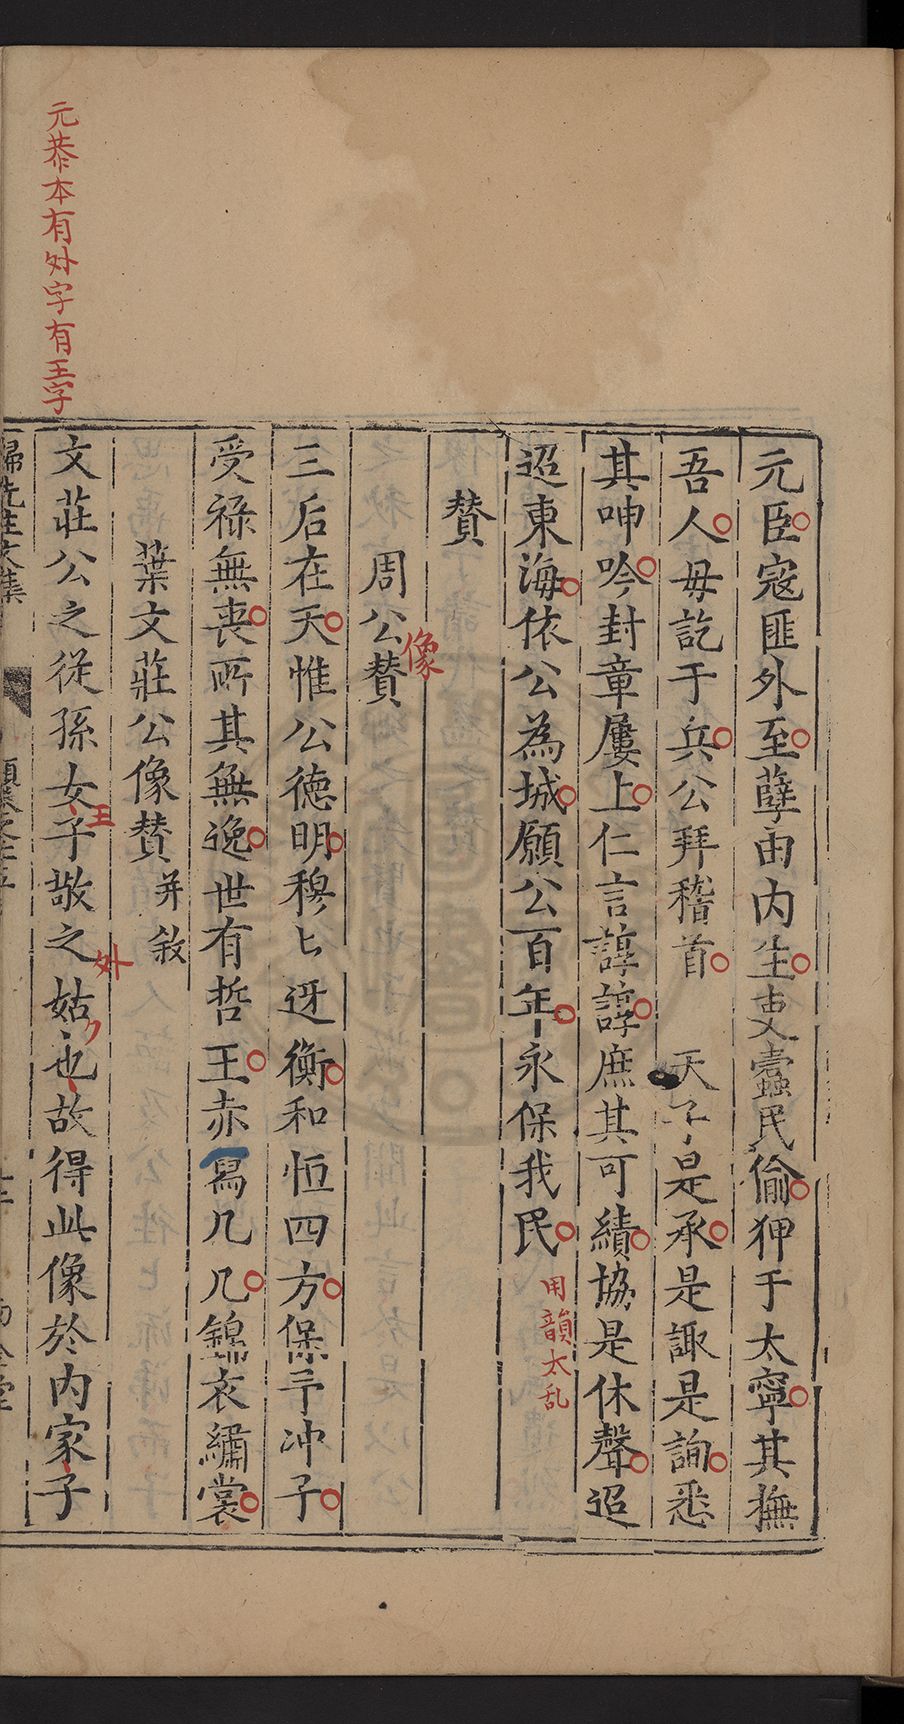 元臣寇匪外至孽由内生吏蠧民偷狎于太寧其撫
吾人毋訖于兵公拜稽首　天子是承是諏是詢悉
其呻吟封章屢上仁言諄諄庶其可績協是休聲迢
迢東海依公為城願公百年永保我民
用韻太乱
賛
周公賛
像
三后在天惟公德明穆匕迓衡和恒四方保予冲子
受祿無喪所其無逸世有哲王赤舃几几錦衣繡裳
葉文莊公像賛并敘
文莊公之從孫女子敬之姑也故得此像於内家子
王
外
元恭本有外字有王字
歸先生文集